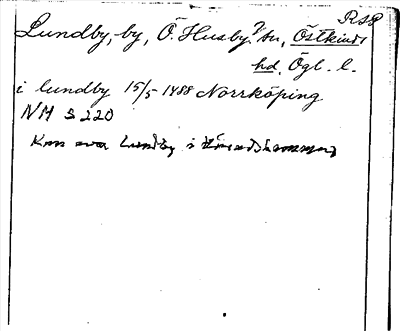 RSP
Lundby, by, Ö. Husby? sn, Östkinds
hd, Ögl. l.
i lundby 15/5 1488 Norrköping
NM s 220
Kan vara Lundby i Häradshammar